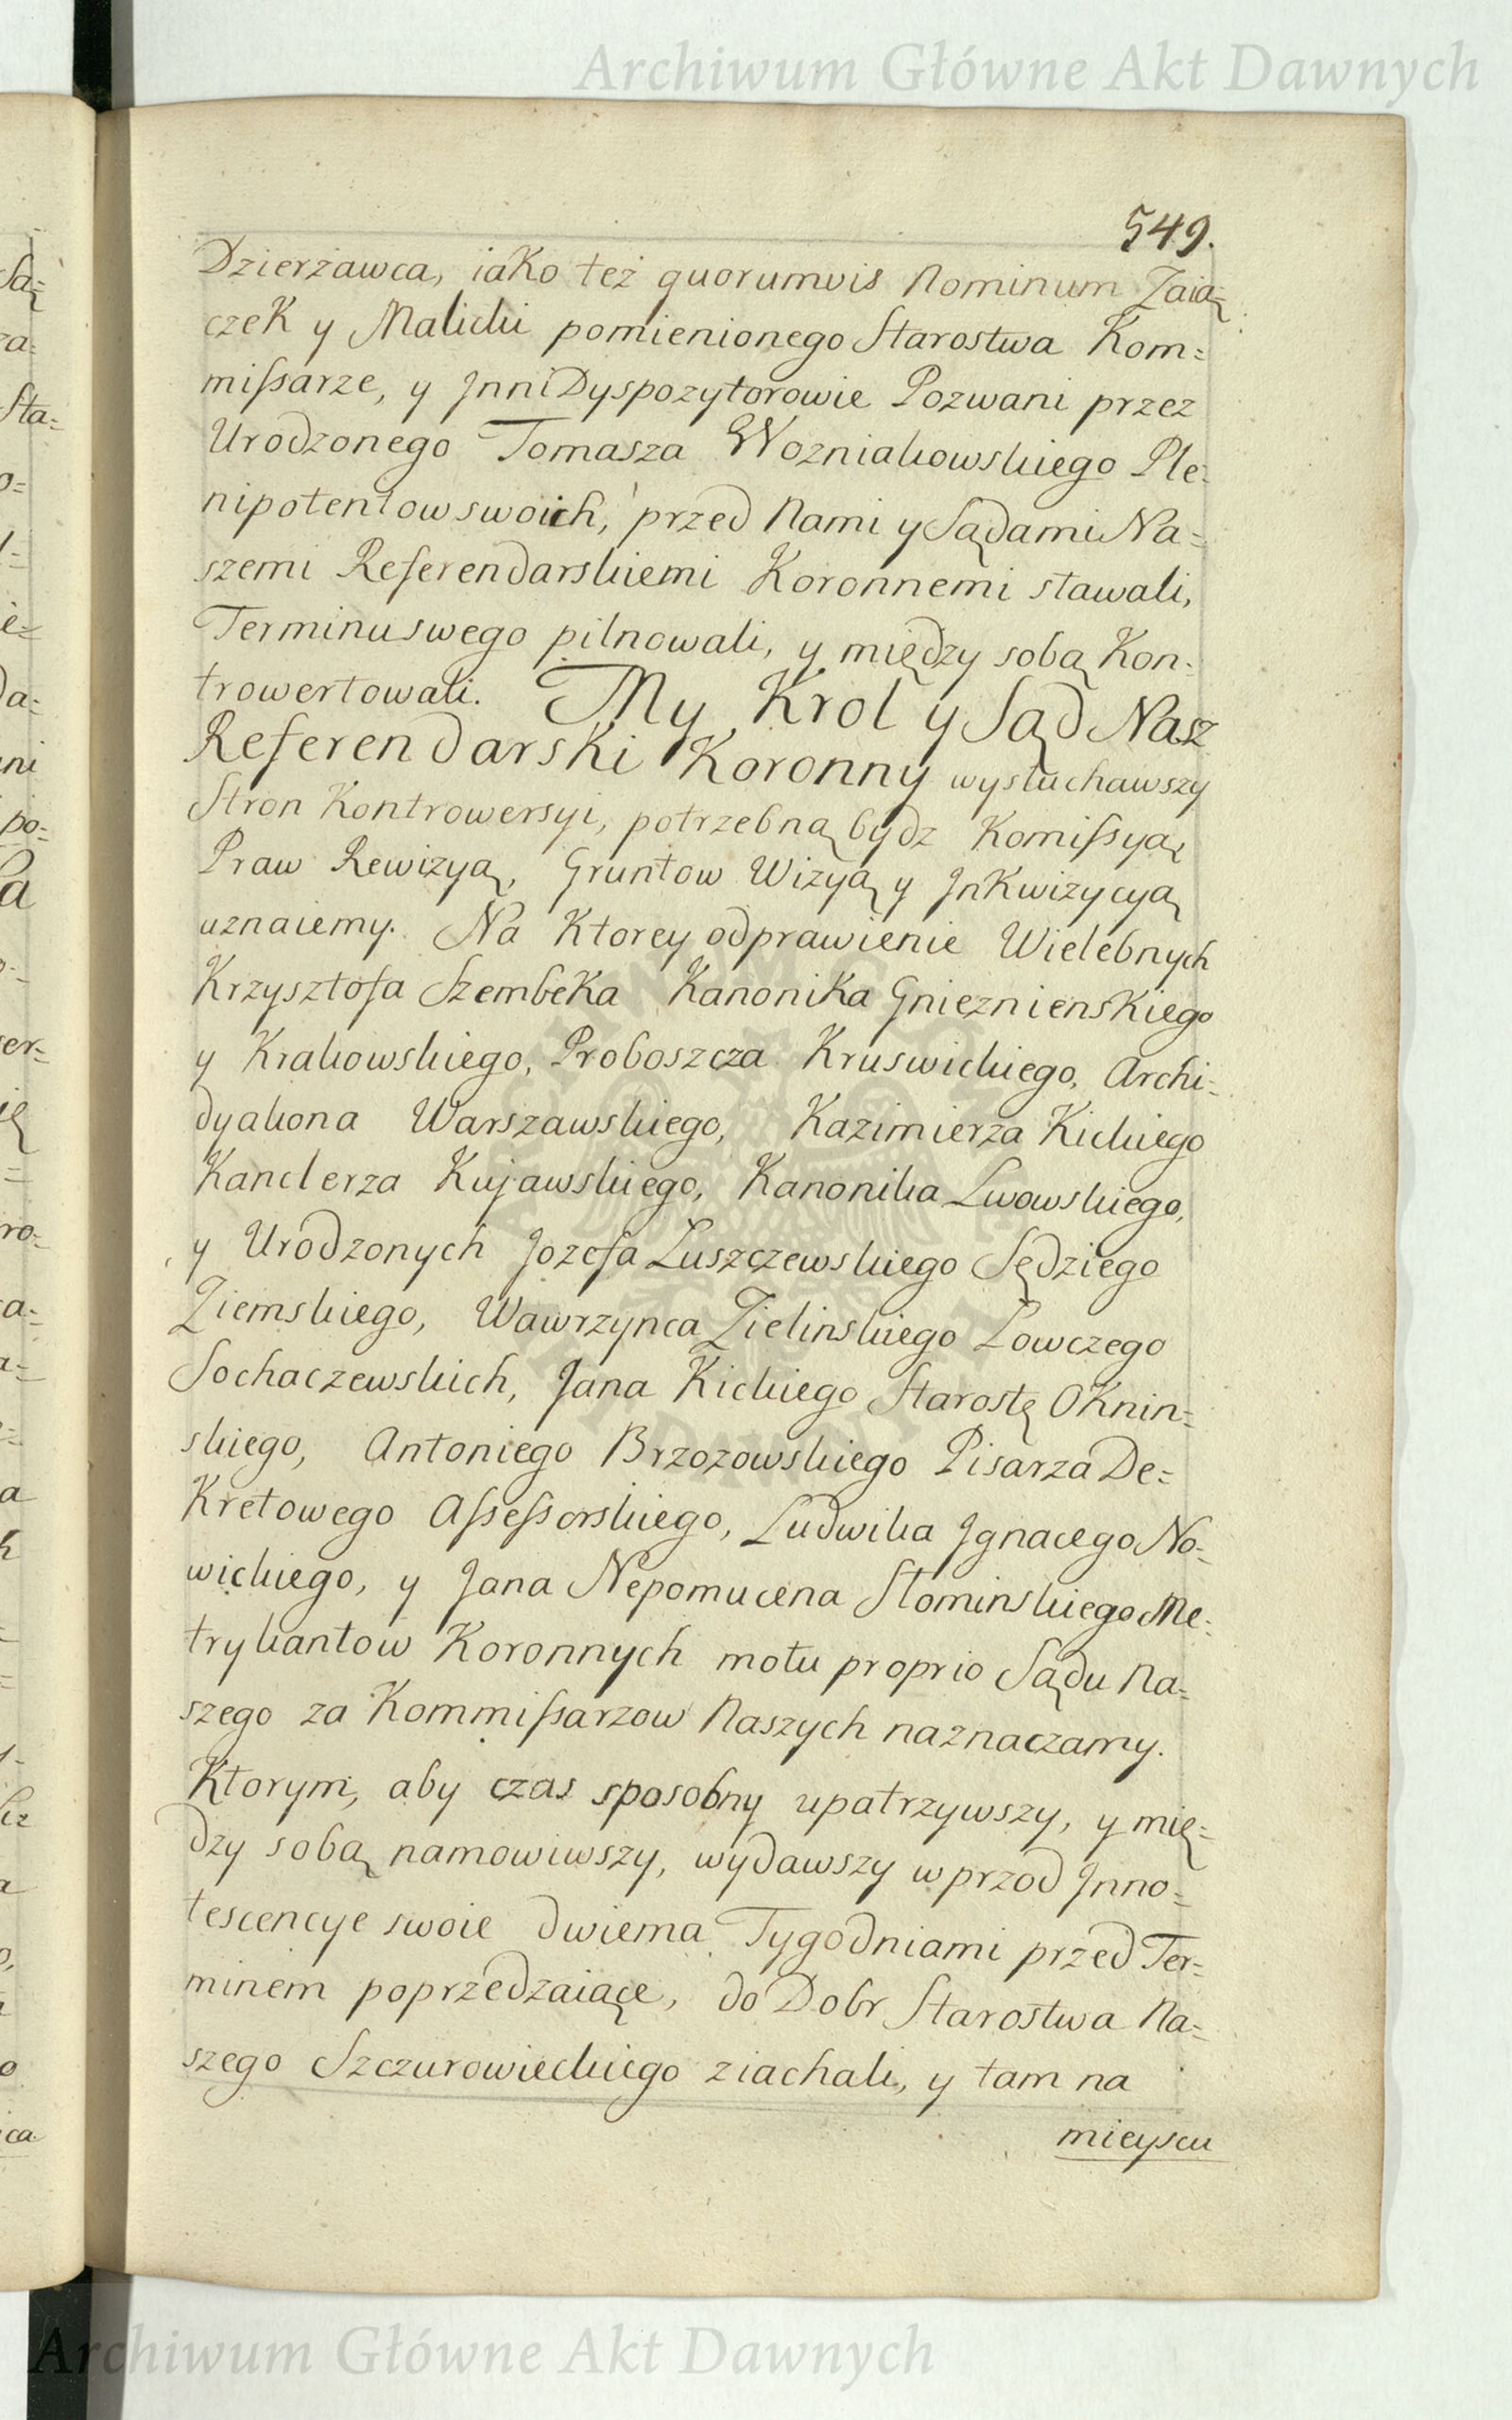 Archiwum Główne Akt Dawnych
549.
Dzierżawca, iako też quorumvis Nominum Zaią=
czek y Malicki pomienionego Starostwa Kom=
missarze, y Jnni Dyspozytorowie Pozwani przez
Urodzonego Tomasza Wozniakowskiego Ple=
nipotentow swoich, przed Nami y Sądami Na=
szemi Referendarskiemi Koronnemi stawali,
Terminu swego pilnowali, y między sobą Kon=
trowertowali. My Krol y Sąd Nasz
Referendarski Koronny wysłuchawszy
Stron Kontrowersyi, potrzebną bydz Komissyą,
Praw Rewizyą, Gruntow Wizyą y Jnkwizycyą
uznaiemy. Na Ktorey odprawienie Wielebnych
Krzysztofa Szembeka Kanonika Gnieznienskiego
y Krakowskiego, Proboszcza Kruswickiego, Archi=
dyakona Warszawskiego, Kazimierza Kickiego
Kanclerza Kujawskiego, Kanonika Lwowskiego,
y Urodzonych Jozefa Łuszczewskiego Sędziego
Ziemskiego, Wawrzynca Zielinskiego Łowczego
Sochaczewskich, Jana Kickiego Starostę Oknin=
skiego, Antoniego Brzozowskiego Pisarza De=
kretowego Assessorskiego, Ludwika Jgnacego No=
wickiego, y Jana Nepomucena Słominskiego Me=
trykantow Koronnych motu proprio Sądu Na=
szego za Kommissarzow Naszych naznaczamy.
Ktorym, aby czas sposobny upatrzywszy, y mię=
dzy sobą namowiwszy, wydawszy wprzod Jnno=
tescencye swoie dwiema Tygodniami przed Ter=
minem poprzedzaiące, do Dobr Starostwa Na=
szego Szczurowieckiego ziachali, y tam na
mieyscu
Archiwum Główne Akt Dawnych